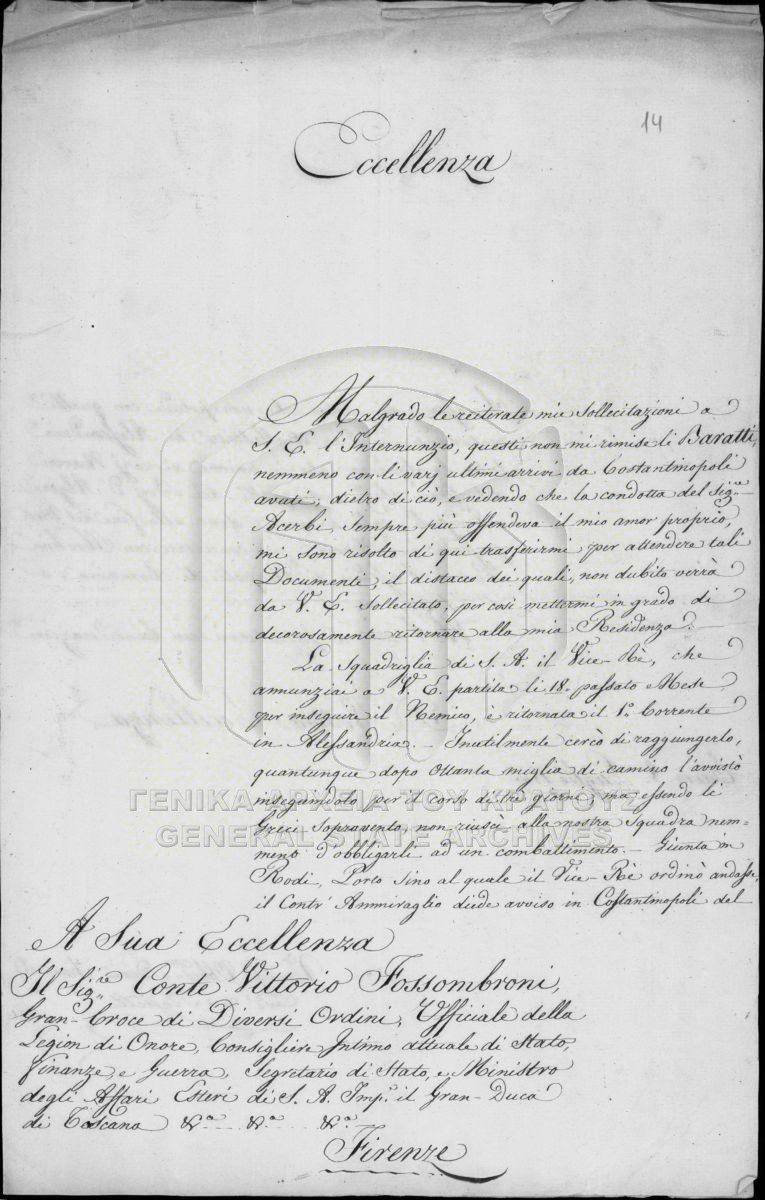 14
Eccellenza
Malgrado le reiterate mie Sollecitazioni a
S. E. l'Internunzio, questi non mi rimise li Baratti,
nemmeno con li varj ultimi arrivi da Costantinopoli
avuti; dietro di ciò, e vedendo che la condotta del Sig.re
Acerbi, sempre più offendeva il mio amor proprio,
mi sono risolto di qui trasferirmi per attendere tali
Documenti, il distacco dei quali, non dubito verrà
da V. E. Sollecitato, per così mettermi in grado di
decorosamente ritornare alla mia Residenza. —
La Squadriglia di S. A. il Vice-Rè, che
annunziai a V. E. partita li 18. passato Mese
per inseguire il Nemico, è ritornata il 1.o Corrente
in Alessandria. — Inutilmente cercò di raggiungerlo,
quantunque dopo Ottanta miglia di camino l'avvistò
inseguindolo per il corso di tre giorni; ma essendo li
Greci Sopravento, non riuscì alla nostra Squadra nem-
meno d'obbligarli ad un combattimento. — Giunta in
Rodi, Porto Sino al quale il Vice-Rè ordinò andasse,
il Contr' Ammiraglio diede avviso in Costantinopoli del
A Sua Eccellenza
Il Sig.re Conte Vittorio Fossombroni,
Gran-Croce di Diversi Ordini, Ufficiale della
Legion di Onore, Consigliere Intimo attuale di Stato,
Finanze, e Guerra, Segretario di Stato, e Ministro
degli Affari Esteri di S. A. Imp.e il Gran-Duca
di Toscana &.a &.a &.a
Firenze
ΓΕΝΙΚΑ ΑΡΧΕΙΑ ΤΟΥ ΚΡΑΤΟΥΣ
GENERAL STATE ARCHIVES